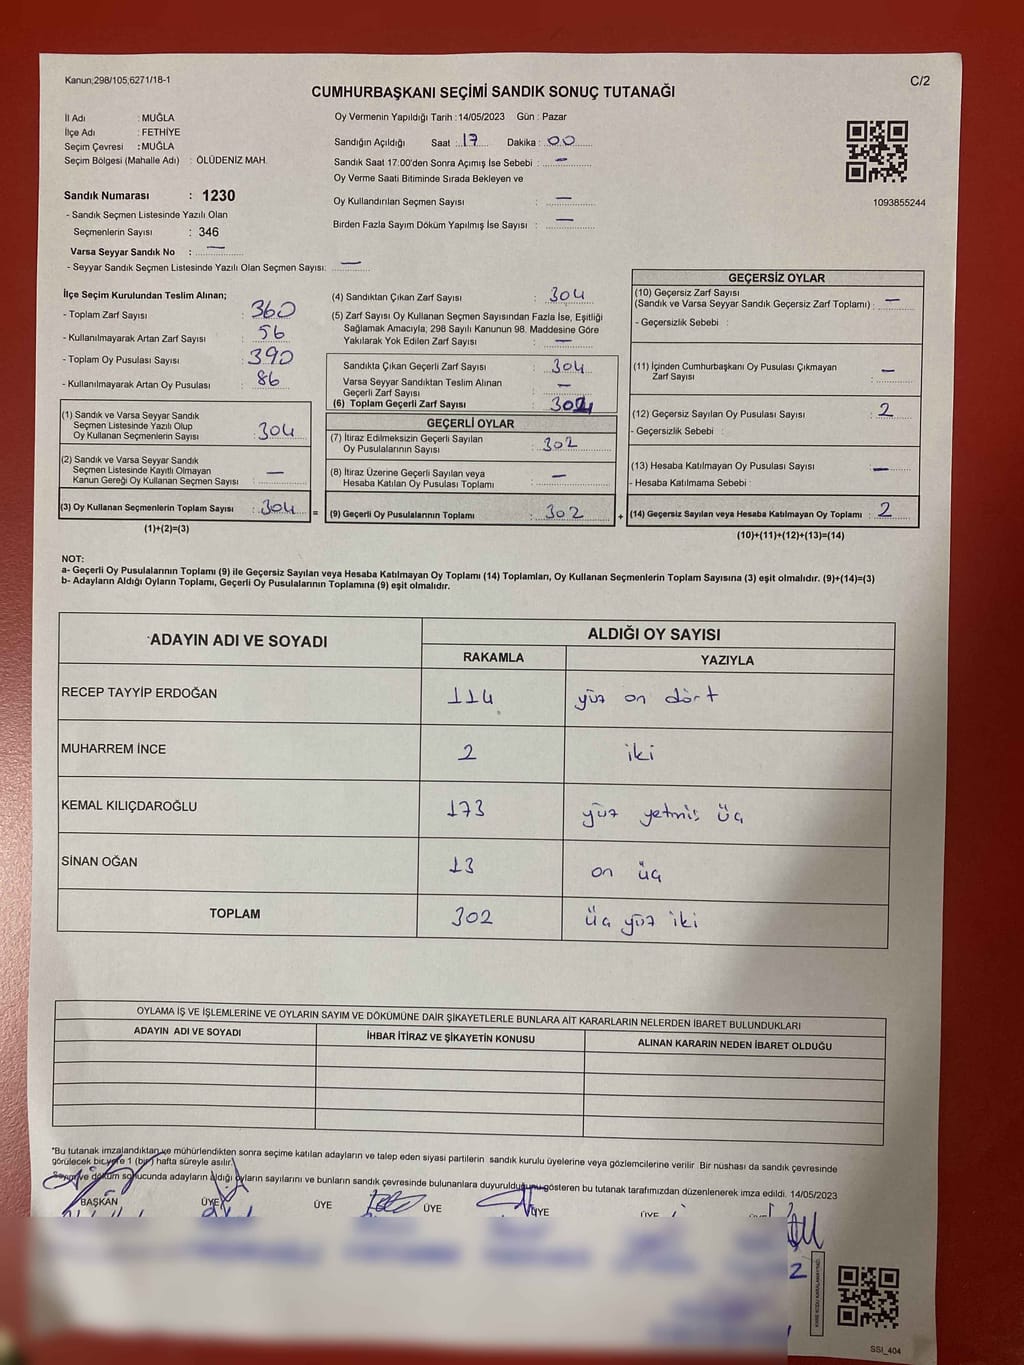 Kanun;298/105;6271/18-1
C/2
CUMHURBAŞKANI SEÇİMİ SANDIK SONUÇ TUTANAĞI
İl Adı : MUĞLA
İlçe Adı : FETHİYE
Seçim Çevresi : MUĞLA
Seçim Bölgesi (Mahalle Adı) : ÖLÜDENİZ MAH.
Sandık Numarası : 1230
- Sandık Seçmen Listesinde Yazılı Olan
Seçmenlerin Sayısı : 346
Varsa Seyyar Sandık No : —
- Seyyar Sandık Seçmen Listesinde Yazılı Olan Seçmen Sayısı: —
Oy Vermenin Yapıldığı Tarih : 14/05/2023 Gün : Pazar
Sandığın Açıldığı Saat : 17 Dakika : 00
Sandık Saat 17:00'den Sonra Açımış İse Sebebi : —
Oy Verme Saati Bitiminde Sırada Bekleyen ve
Oy Kullandırılan Seçmen Sayısı : —
Birden Fazla Sayım Döküm Yapılmış İse Sayısı : —
1093855244
İlçe Seçim Kurulundan Teslim Alınan;
- Toplam Zarf Sayısı : 360
- Kullanılmayarak Artan Zarf Sayısı : 56
- Toplam Oy Pusulası Sayısı : 390
- Kullanılmayarak Artan Oy Pusulası : 86
(1) Sandık ve Varsa Seyyar Sandık
Seçmen Listesinde Yazılı Olup
Oy Kullanan Seçmenlerin Sayısı : 304
(2) Sandık ve Varsa Seyyar Sandık
Seçmen Listesinde Kayıtlı Olmayan
Kanun Gereği Oy Kullanan Seçmen Sayısı : —
(3) Oy Kullanan Seçmenlerin Toplam Sayısı : 304
(1)+(2)=(3)
(4) Sandıktan Çıkan Zarf Sayısı : 304
(5) Zarf Sayısı Oy Kullanan Seçmen Sayısından Fazla İse, Eşitliği
Sağlamak Amacıyla; 298 Sayılı Kanunun 98. Maddesine Göre
Yakılarak Yok Edilen Zarf Sayısı : —
Sandıkta Çıkan Geçerli Zarf Sayısı : 304
Varsa Seyyar Sandıktan Teslim Alınan
Geçerli Zarf Sayısı : —
(6) Toplam Geçerli Zarf Sayısı : 304
GEÇERLİ OYLAR
(7) İtiraz Edilmeksizin Geçerli Sayılan
Oy Pusulalarının Sayısı : 302
(8) İtiraz Üzerine Geçerli Sayılan veya
Hesaba Katılan Oy Pusulası Toplamı : —
= (9) Geçerli Oy Pusulalarının Toplamı : 302
GEÇERSİZ OYLAR
(10) Geçersiz Zarf Sayısı
(Sandık ve Varsa Seyyar Sandık Geçersiz Zarf Toplamı) : —
- Geçersizlik Sebebi :
(11) İçinden Cumhurbaşkanı Oy Pusulası Çıkmayan
Zarf Sayısı : —
(12) Geçersiz Sayılan Oy Pusulası Sayısı : 2
- Geçersizlik Sebebi :
(13) Hesaba Katılmayan Oy Pusulası Sayısı : —
- Hesaba Katılmama Sebebi :
+ (14) Geçersiz Sayılan veya Hesaba Katılmayan Oy Toplamı : 2
(10)+(11)+(12)+(13)=(14)
NOT:
a- Geçerli Oy Pusulalarının Toplamı (9) ile Geçersiz Sayılan veya Hesaba Katılmayan Oy Toplamı (14) Toplamları, Oy Kullanan Seçmenlerin Toplam Sayısına (3) eşit olmalıdır. (9)+(14)=(3)
b- Adayların Aldığı Oyların Toplamı, Geçerli Oy Pusulalarının Toplamına (9) eşit olmalıdır.
ADAYIN ADI VE SOYADI
ALDIĞI OY SAYISI
RAKAMLA YAZIYLA
RECEP TAYYİP ERDOĞAN 114 yüz on dört
MUHARREM İNCE 2 iki
KEMAL KILIÇDAROĞLU 173 yüz yetmiş üç
SİNAN OĞAN 13 on üç
TOPLAM 302 üç yüz iki
OYLAMA İŞ VE İŞLEMLERİNE VE OYLARIN SAYIM VE DÖKÜMÜNE DAİR ŞİKAYETLERLE BUNLARA AİT KARARLARIN NELERDEN İBARET BULUNDUKLARI
ADAYIN ADI VE SOYADI İHBAR İTİRAZ VE ŞİKAYETİN KONUSU ALINAN KARARIN NEDEN İBARET OLDUĞU
*Bu tutanak imzalandıktan ve mühürlendikten sonra seçime katılan adayların ve talep eden siyasi partilerin sandık kurulu üyelerine veya gözlemcilerine verilir. Bir nüshası da sandık çevresinde
görülecek bir yere 1 (bir) hafta süreyle asılır.
Sayım ve döküm sonucunda adayların aldığı oyların sayılarını ve bunların sandık çevresinde bulunanlara duyurulduğunu gösteren bu tutanak tarafımızdan düzenlenerek imza edildi. 14/05/2023
BAŞKAN ÜYE ÜYE ÜYE ÜYE ÜYE
2
SSI_404